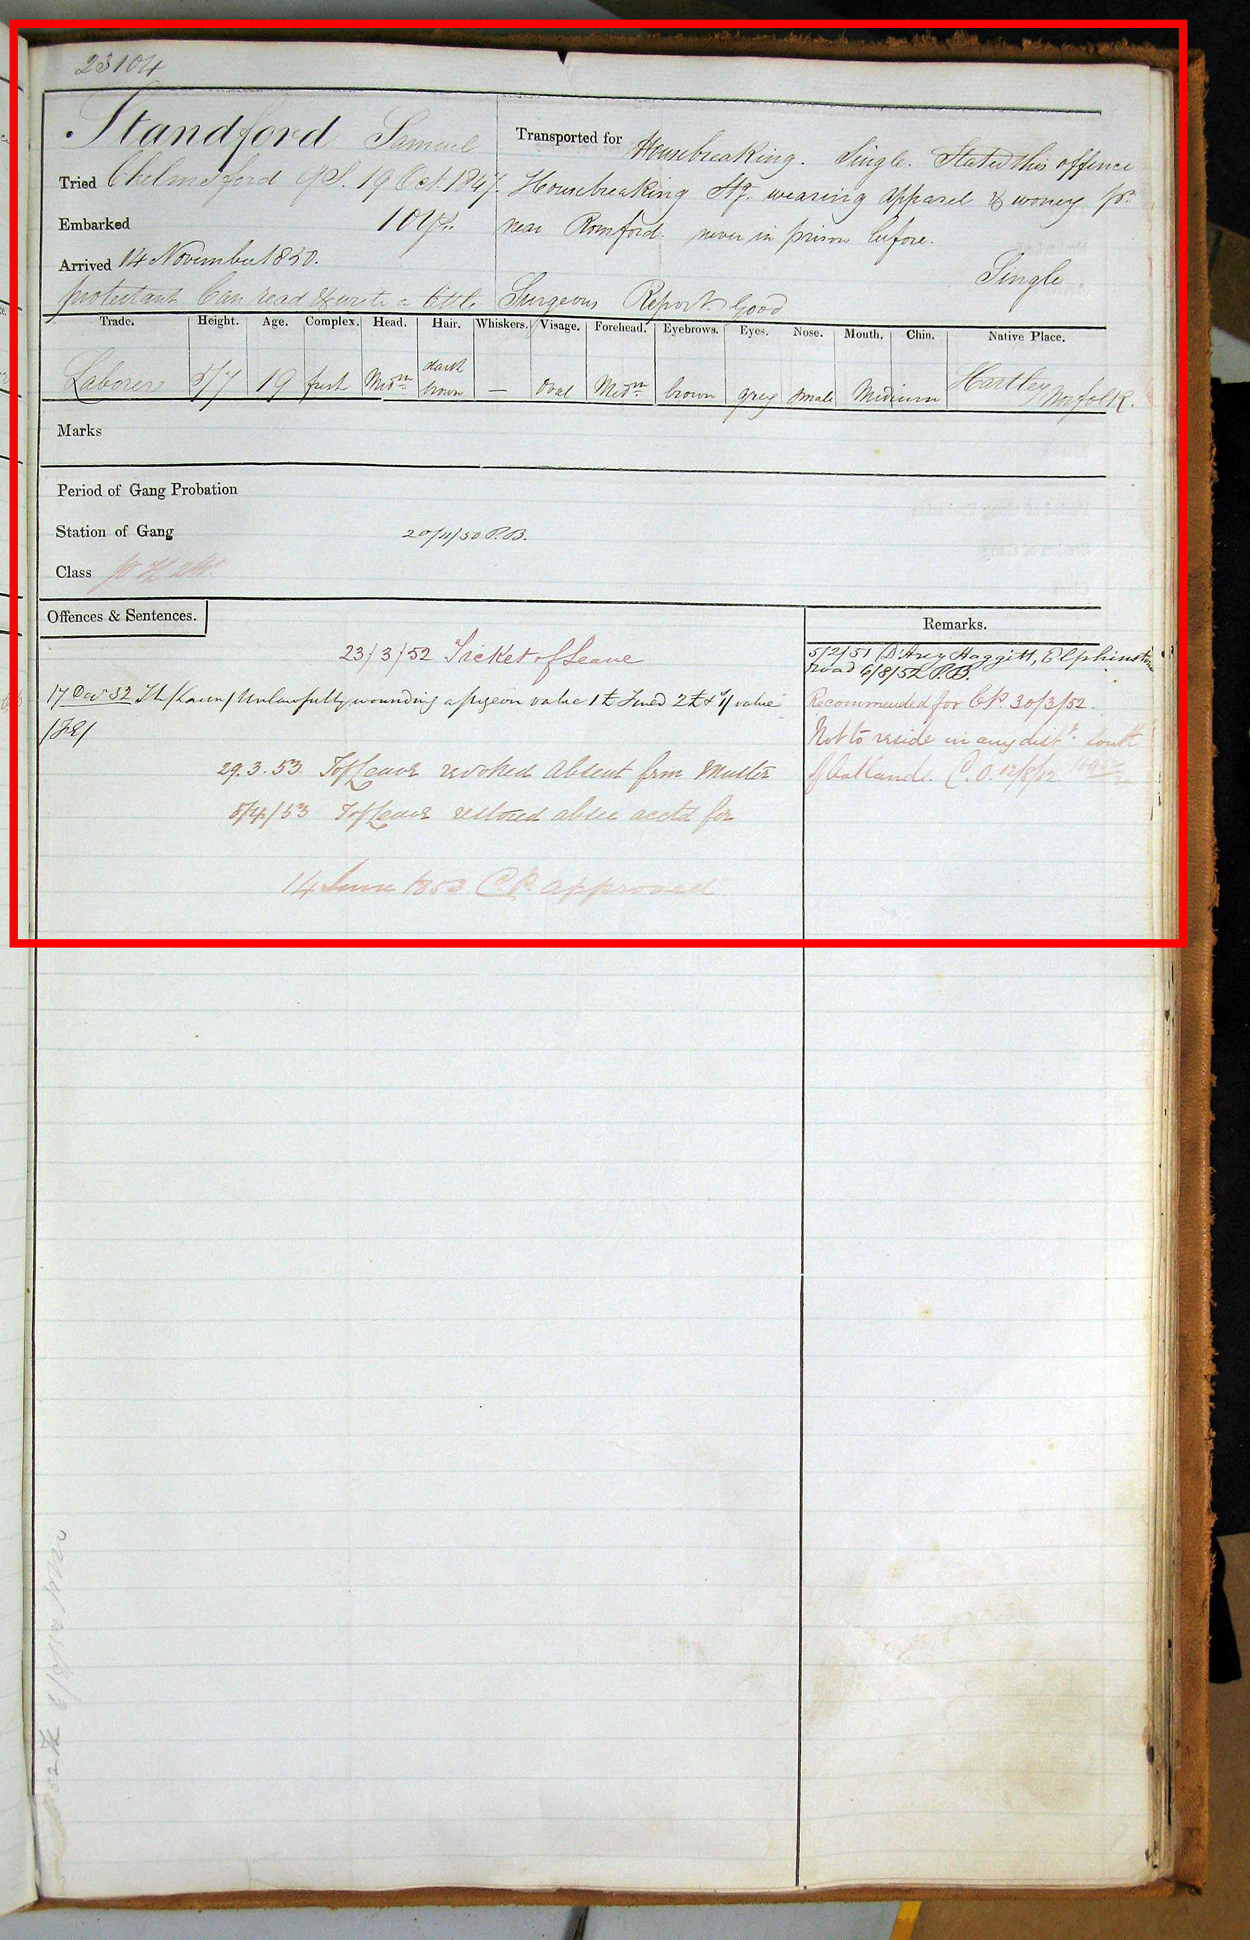 23104
Standford Samuel
Transported for Housebreaking. Single. Stated this offence
Tried Chelmsford 19 Oct. 1847.
Housebreaking Stg. wearing apparel & money pr.
Embarked 10 yrs.
near Romford. never in prison before.
Arrived 14 November 1850.
Single
protestant Can read & write a little
Surgeons Report. Good
Trade. Height. Age. Complex. Head. Hair. Whiskers. Visage. Forehead. Eyebrows. Eyes. Nose. Mouth. Chin. Native Place.
Laborer 5/7 19 fresh Medm dark brown — Oval Medm brown grey small Medium Hartley Norfolk.
Marks
Period of Gang Probation
Station of Gang 20/11/50 P.B.
Class
Offences & Sentences.
Remarks.
23/3/52 Ticket of Leave
5/2/51 D'Arcy Haggitt, Elphinstone
Road 4/8/52 P.B.
17 Decr 52 TL/Laun/ Unlawfully wounding a pigeon value 1/- Fined 2£ & 1/ value
Recommended for C.P. 30/3/52.
Not to reside in any distt. South
29.3.53 T of Leave revoked absent from Muster
of Oatlands. C.O. 12/8/52
8/4/53 T of Leave restored absce acctd for
14 June 1853 C.P. approved